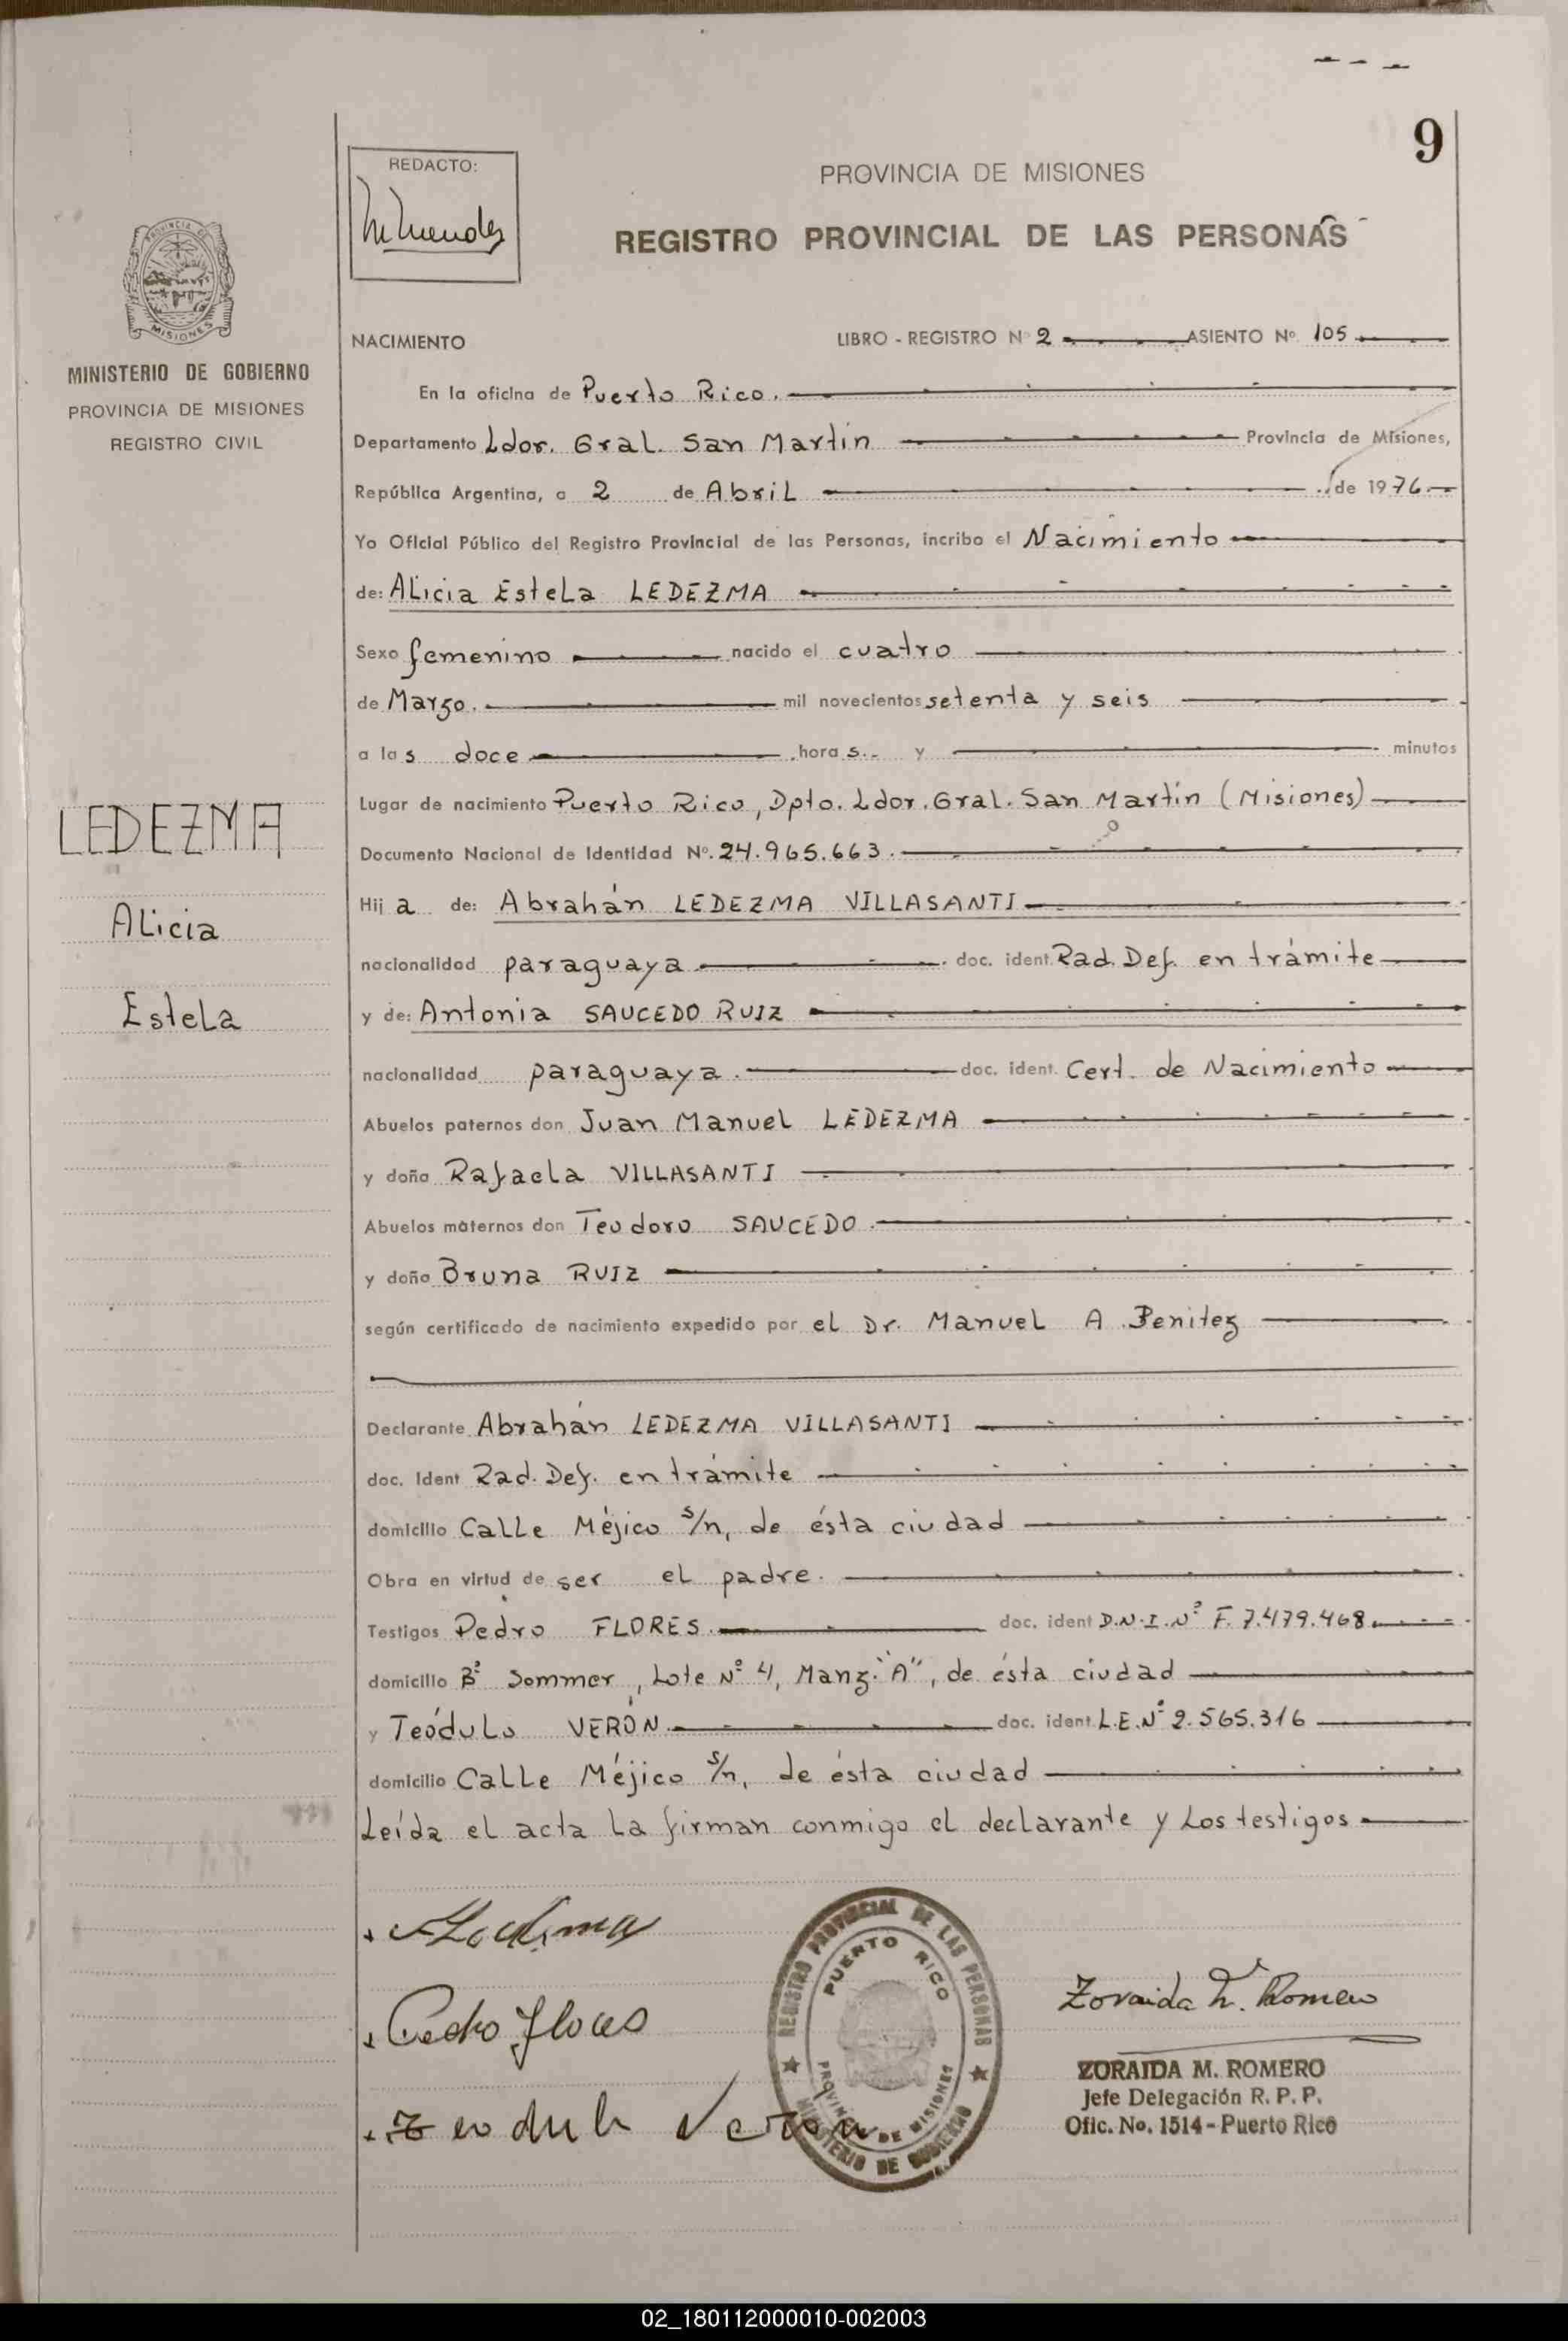 9
REDACTO:
PROVINCIA DE MISIONES
REGISTRO PROVINCIAL DE LAS PERSONAS
PROVINCIA DE
MISIONES
MINISTERIO DE GOBIERNO
PROVINCIA DE MISIONES
REGISTRO CIVIL
NACIMIENTO LIBRO - REGISTRO Nº 2 ASIENTO Nº 105
En la oficina de Puerto Rico.
Departamento Ldor. Gral. San Martín Provincia de Misiones,
República Argentina, a 2 de Abril de 1976.
Yo Oficial Público del Registro Provincial de las Personas, incribo el Nacimiento
de: Alicia Estela LEDEZMA
Sexo femenino nacido el cuatro
de Marzo. mil novecientos setenta y seis
a las doce horas. y minutos
Lugar de nacimiento Puerto Rico, Dpto. Ldor. Gral. San Martín (Misiones)
Documento Nacional de Identidad Nº. 24.965.663.
Hija de: Abrahán LEDEZMA VILLASANTI
nacionalidad paraguaya doc. ident. Rad. Def. en trámite
y de: Antonia SAUCEDO RUIZ
nacionalidad paraguaya. doc. ident. Cert. de Nacimiento
Abuelos paternos don Juan Manuel LEDEZMA
y doña Rafaela VILLASANTI
Abuelos maternos don Teodoro SAUCEDO.
y doña Bruna RUIZ
según certificado de nacimiento expedido por el Dr. Manuel A. Benitez
Declarante Abrahán LEDEZMA VILLASANTI
doc. Ident Rad. Def. en trámite
domicilio Calle Méjico s/n, de ésta ciudad
Obra en virtud de ser el padre.
Testigos Pedro FLORES. doc. ident D.N.I. Nº F. 7.479.468.
domicilio Bº Sommer, Lote Nº 4, Manz. "A", de ésta ciudad
y Teódulo VERÓN. doc. ident. L.E. Nº 2.565.316
domicilio Calle Méjico s/n, de ésta ciudad
Leída el acta la firman conmigo el declarante y los testigos
LEDEZMA
Alicia
Estela
Pedro Flores
Teodulo Veron
REGISTRO PROVINCIAL DE LAS PERSONAS
PUERTO RICO
PROVINCIA DE MISIONES
MINISTERIO DE GOBIERNO
Zoraida M. Romero
ZORAIDA M. ROMERO
Jefe Delegación R. P. P.
Ofic. No. 1514 - Puerto Rico
02_180112000010-002003